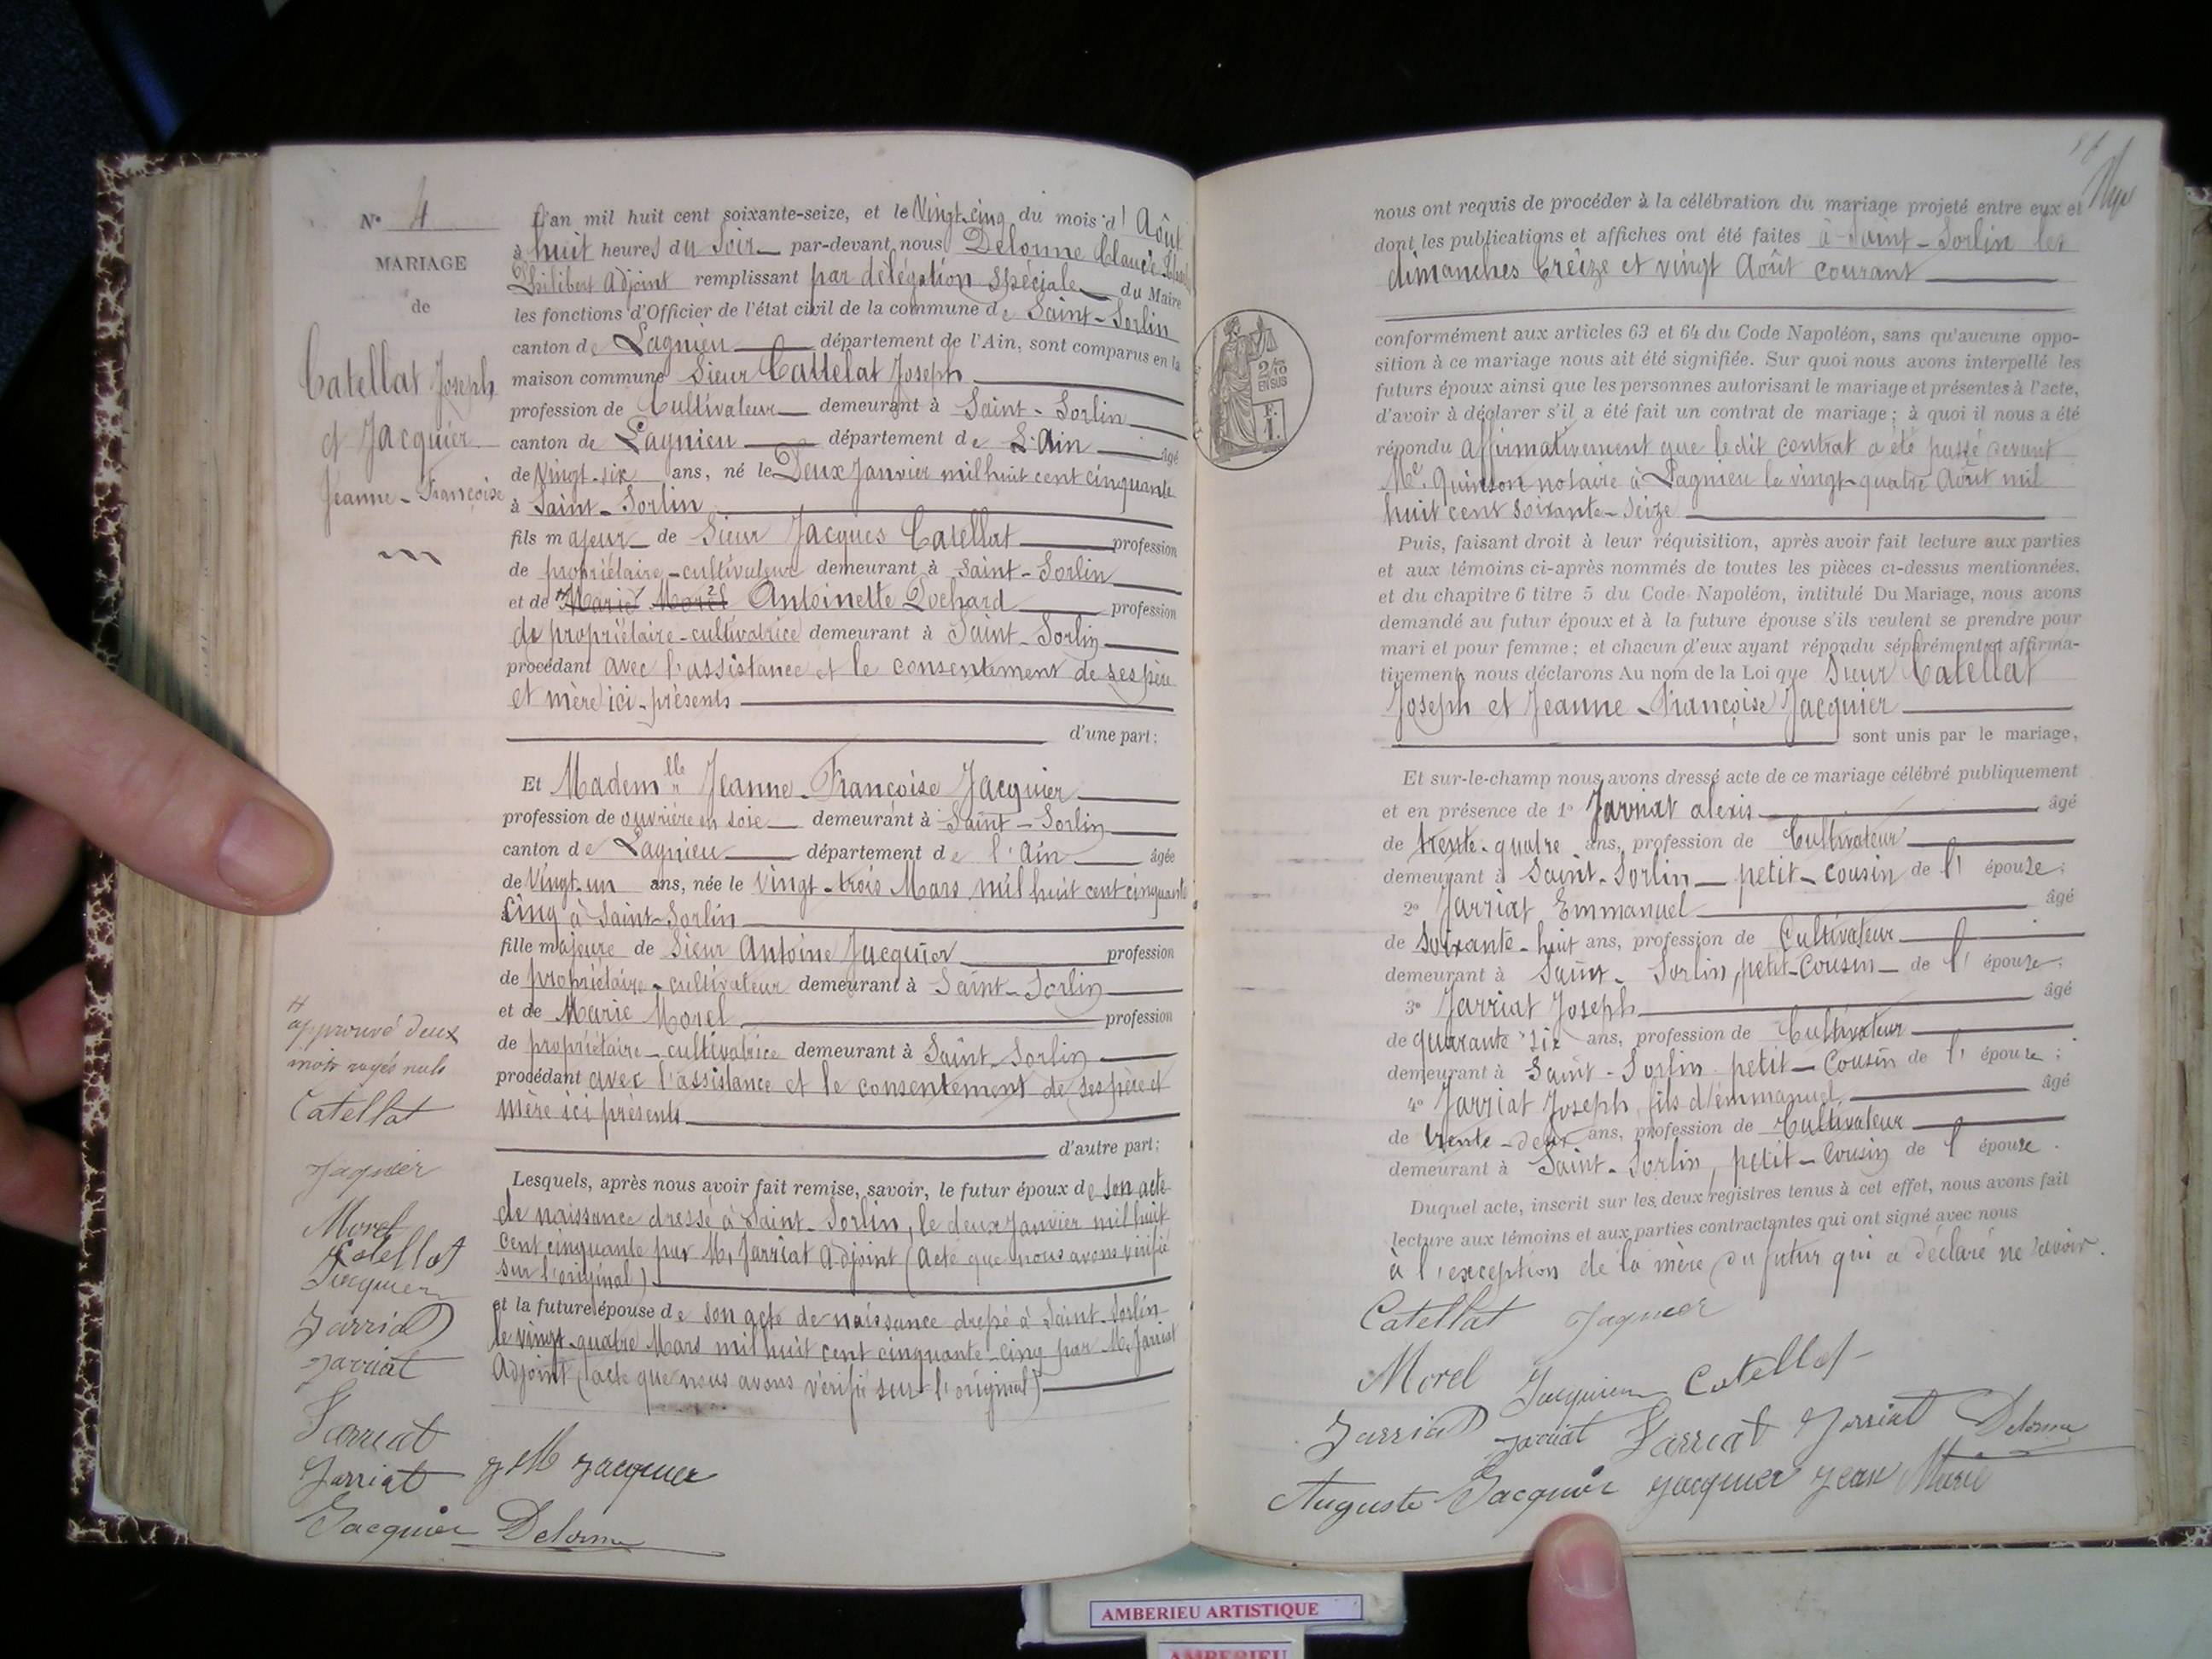 N° 4
MARIAGE
de
Catellat Joseph
et Jacquier
Jeanne-Françoise
L'an mil huit cent soixante-seize, et le Vingt-cinq du mois d' Août
à huit heures du Soir par-devant nous Delorme Claude
Philibert Adjoint remplissant par délégation spéciale du Maire
les fonctions d'Officier de l'état civil de la commune de Saint-Sorlin
canton de Lagnieu département de l'Ain, sont comparus en la
maison commune Sieur Cattelat Joseph
profession de Cultivateur demeurant à Saint-Sorlin
canton de Lagnieu département de L'Ain âgé
de Vingt-six ans, né le Deux Janvier mil huit cent cinquante
à Saint-Sorlin
fils majeur de Sieur Jacques Catellat profession
de propriétaire-cultivateur demeurant à Saint-Sorlin
et de Marie Morel Antoinette Dochard profession
de propriétaire-cultivatrice demeurant à Saint-Sorlin
procédant avec l'assistance et le consentement de ses père
et mère ici-présents
d'une part;
Et Madem lle Jeanne-Françoise Jacquier
profession de ouvrière en soie demeurant à Saint-Sorlin
canton de Lagnieu département de l'Ain âgée
de Vingt-un ans, née le Vingt-trois Mars mil huit cent cinquante
cinq à Saint-Sorlin
fille majeure de Sieur Antoine Jacquier profession
de propriétaire-cultivateur demeurant à Saint-Sorlin
et de Marie Morel profession
de propriétaire-cultivatrice demeurant à Saint-Sorlin
procédant avec l'assistance et le consentement de ses père et
mère ici présents
d'autre part;
Lesquels, après nous avoir fait remise, savoir, le futur époux de son acte
de naissance dressé à Saint-Sorlin, le deux Janvier mil huit
cent cinquante par M. Jarriat Adjoint (acte que nous avons vérifié
sur l'original)
et la future épouse de son acte de naissance dressé à Saint-Sorlin
le vingt-quatre Mars mil huit cent cinquante-cinq par M. Jarriat
Adjoint (acte que nous avons vérifié sur l'original)
approuvé deux
mots rayés nuls
Catellat
Jaquier
Morel
Catellat
Jacquier
Jarriat
Jarriat
Jarriat
Jarriat J M Jacquier
Jacquier Delorme
nous ont requis de procéder à la célébration du mariage projeté entre eux et
dont les publications et affiches ont été faites à Saint-Sorlin les
dimanches treize et vingt Août courant
2/10
EN SUS
conformément aux articles 63 et 64 du Code Napoléon, sans qu'aucune oppo-
sition à ce mariage nous ait été signifiée. Sur quoi nous avons interpellé les
futurs époux ainsi que les personnes autorisant le mariage et présentes à l'acte,
d'avoir à déclarer s'il a été fait un contrat de mariage; à quoi il nous a été
répondu affirmativement que le dit contrat a été passé devant
Me. Quinson notaire à Lagnieu le vingt-quatre Août mil
huit cent soixante-seize
Puis, faisant droit à leur réquisition, après avoir fait lecture aux parties
et aux témoins ci-après nommés de toutes les pièces ci-dessus mentionnées,
et du chapitre 6 titre 5 du Code Napoléon, intitulé Du Mariage, nous avons
demandé au futur époux et à la future épouse s'ils veulent se prendre pour
mari et pour femme; et chacun d'eux ayant répondu séparément et affirma-
tivement, nous déclarons Au nom de la Loi que Sieur Catellat
Joseph et Jeanne-Françoise Jacquier
sont unis par le mariage,
Et sur-le-champ nous avons dressé acte de ce mariage célébré publiquement
et en présence de 1° Jarriat alexis âgé
de trente-quatre ans, profession de Cultivateur
demeurant à Saint-Sorlin petit-cousin de l'épouse;
2° Jarriat Emmanuel âgé
de soixante-huit ans, profession de Cultivateur
demeurant à Saint-Sorlin, petit-Cousin de l'épouse;
3° Jarriat Joseph âgé
de quarante six ans, profession de Cultivateur
demeurant à Saint-Sorlin petit-Cousin de l'épouse;
4° Jarriat Joseph, fils d'émmanuel, âgé
de trente-deux ans, profession de Cultivateur
demeurant à Saint-Sorlin, petit-Cousin de l'épouse.
Duquel acte, inscrit sur les deux registres tenus à cet effet, nous avons fait
lecture aux témoins et aux parties contractantes qui ont signé avec nous
à l'exception de la mère du futur qui a déclaré ne savoir.
Catellat Jaquier
Morel Jacquier Catellat
Jarriat Jarriat Jarriat Jarriat Delorme
Auguste Jacquier Jacquier Jean Marie
AMBERIEU ARTISTIQUE
AMBERIEU